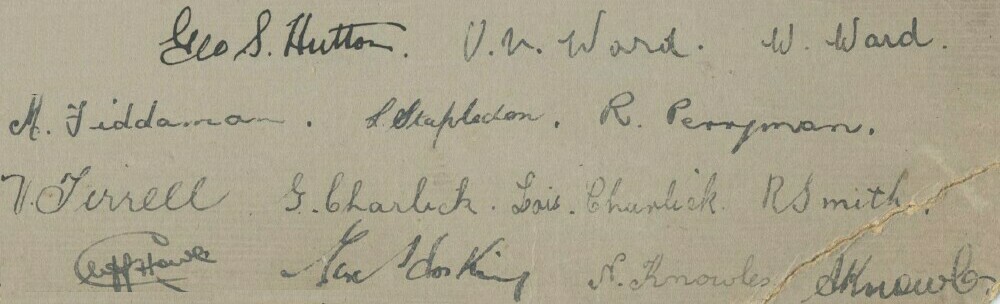 Geo S. Hutton. V. V. Ward. W. Ward.
M. Fiddaman. L. Stapledon. R. Perryman.
V. Tirrell G. Charlick. Lois. Charlick. R Smith.
Cliff Hawe Max Hosking N. Knowles S Knowles.